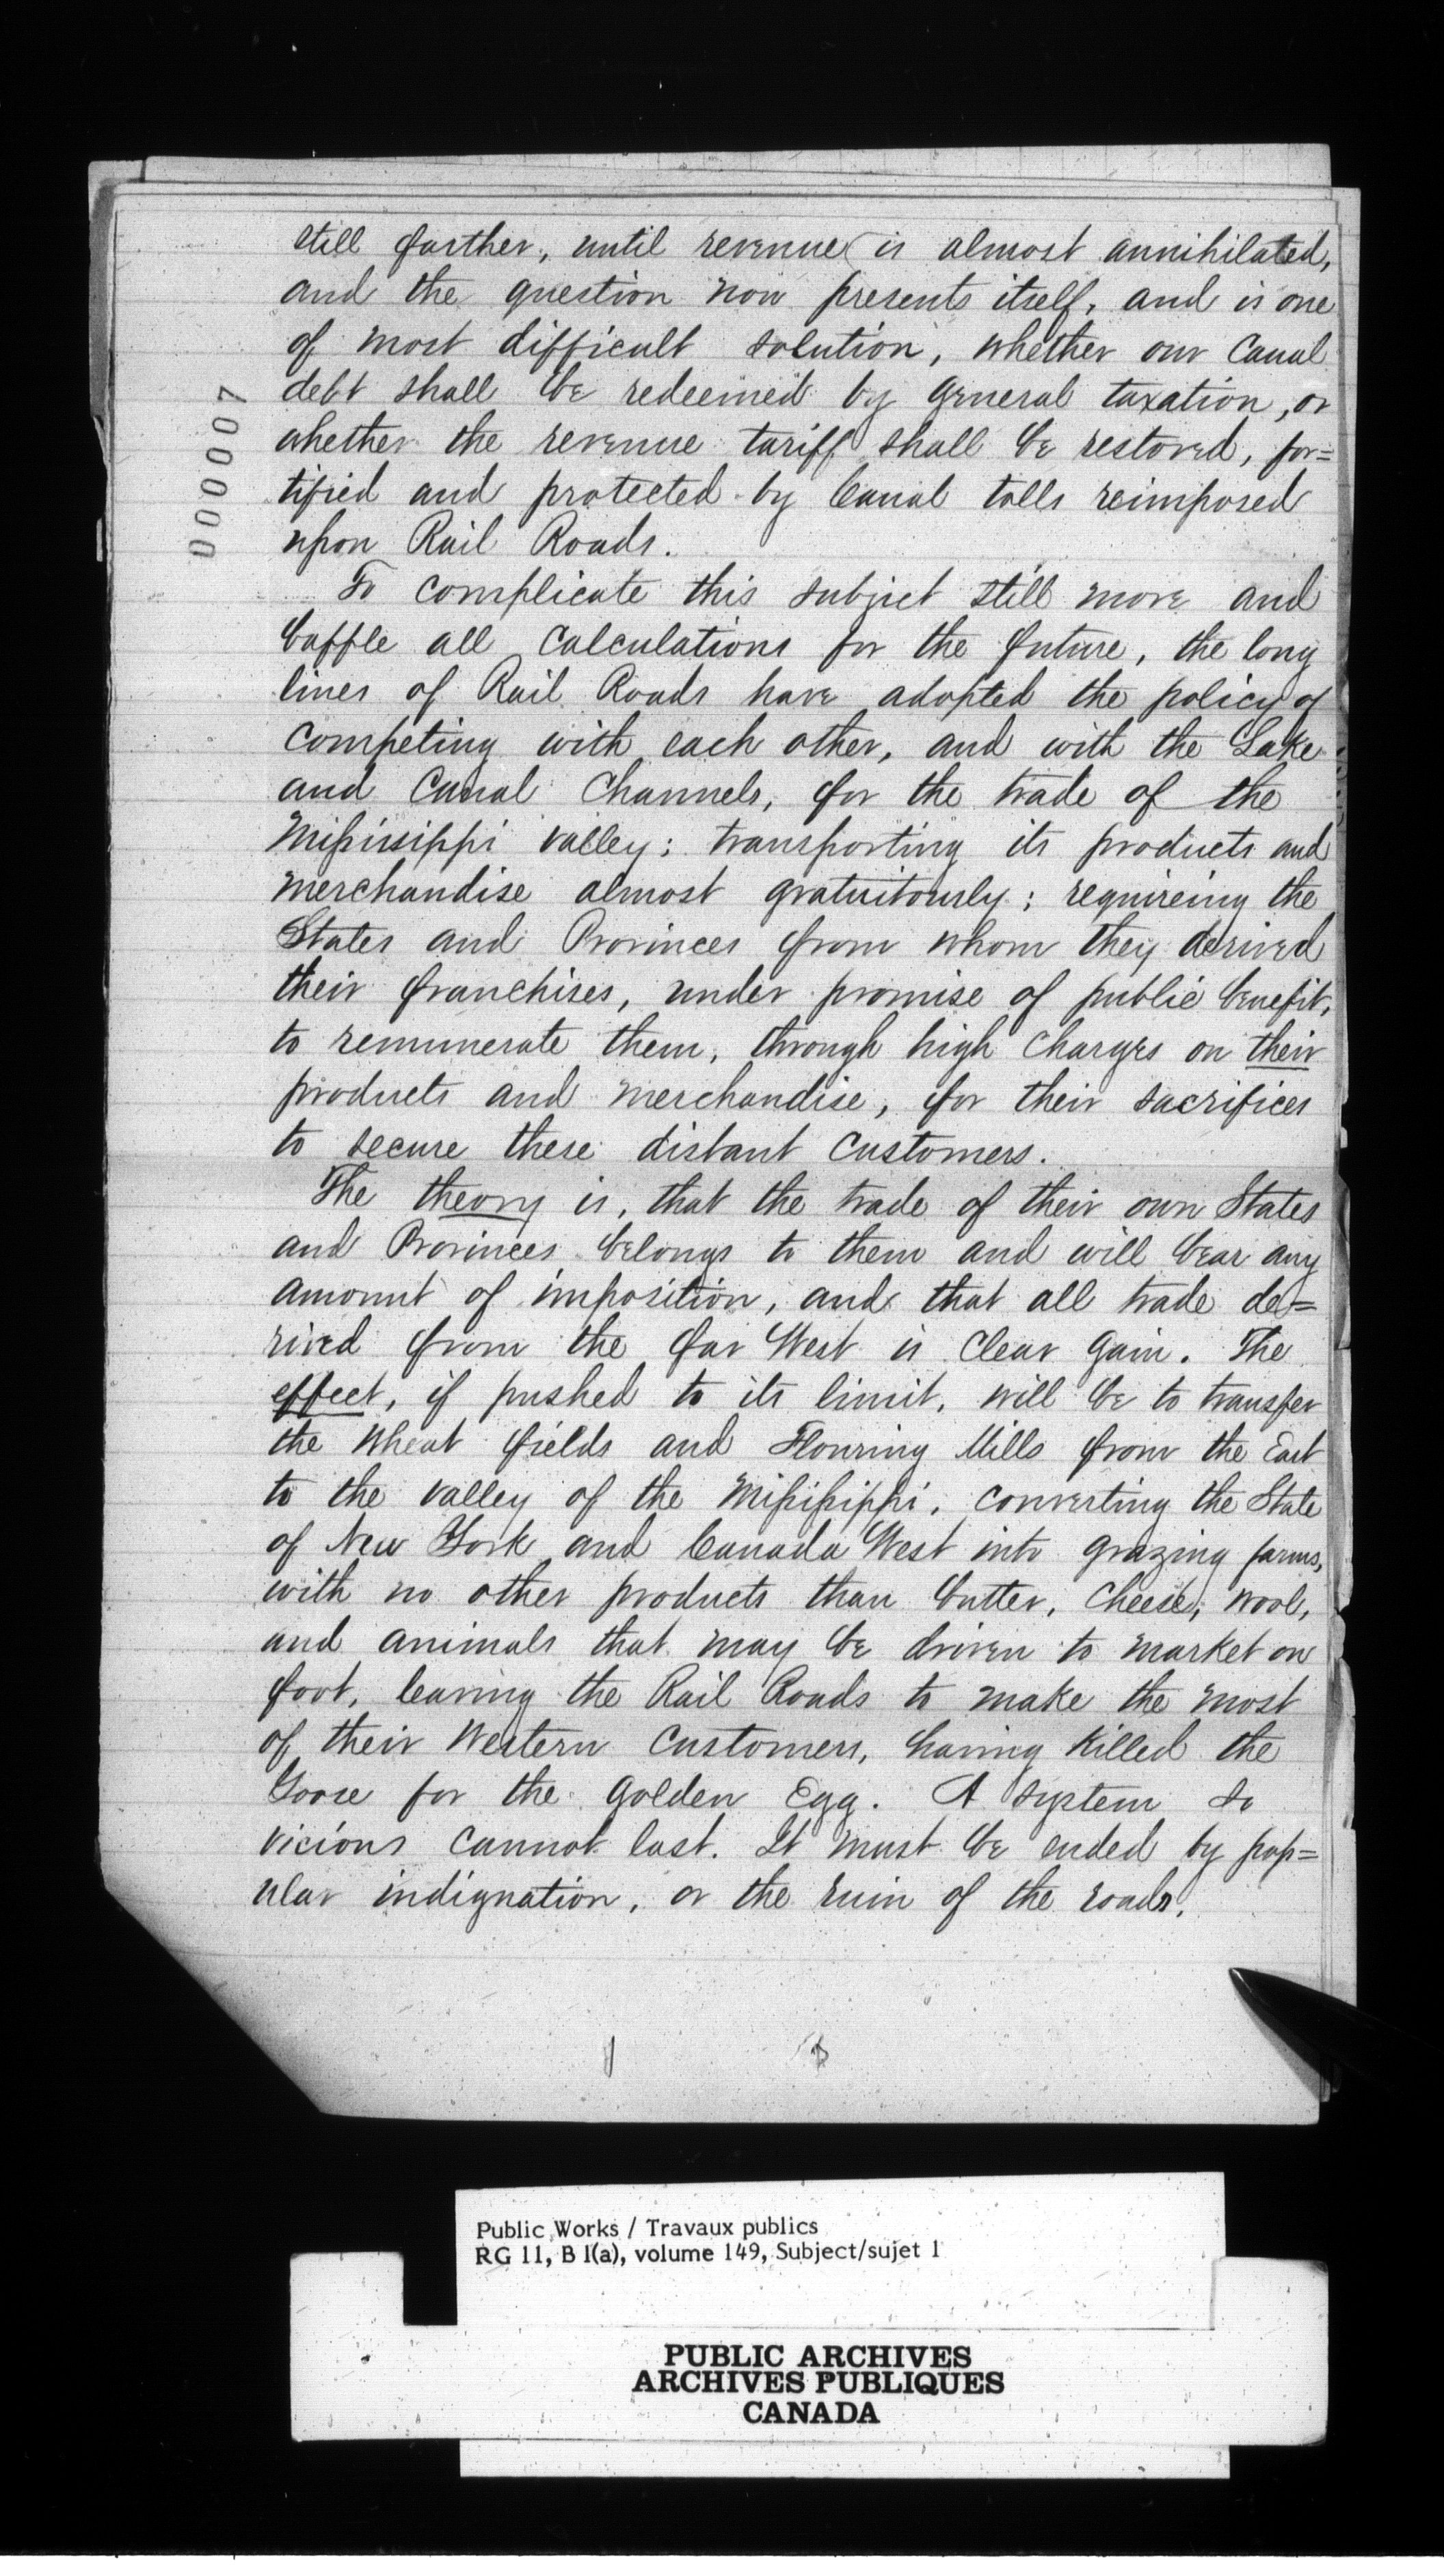 still farther, until revenue is almost annihilated,
and the question now presents itself, and is one
of most difficult solution, whether our Canal
debt shall be redeemed by general taxation, or
whether the revenue tariff shall be restored, for=
tified and protected by Canal tolls reimposed
upon Rail Roads.
To complicate this subject still more and
baffle all calculations for the future, the long
lines of Rail Roads have adopted the policy of
competing with each other, and with the Lake
and Canal Channels, for the trade of the
Missisippi valley; transporting its products and
merchandise almost gratuitously; requireing the
States and Provinces from whom they derived
their franchises, under promise of public benefit,
to remunerate them, through high charges on their
products and merchandise, for their sacrifices
to secure these distant customers.
The theory is, that the trade of their own States
and Provinces belongs to them and will bear any
amount of imposition, and that all trade de=
rived from the far West is clear gain. The
effect, if pushed to its limit, will be to transfer
the wheat fields and Flouring Mills from the East
to the valley of the Mississippi, converting the State
of New York and Canada West into grazing farms,
with no other products than butter, cheese, wool,
and animals that may be driven to market on
foot, leaving the Rail Roads to make the most
of their Western customers, having killed the
Goose for the golden Egg. A system so
vicious cannot last. It must be ended by pop=
ular indignation, or the ruin of the roads.
000007
Public Works / Travaux publics
RG 11, B 1(a), volume 149, Subject/sujet 1
PUBLIC ARCHIVES
ARCHIVES PUBLIQUES
CANADA